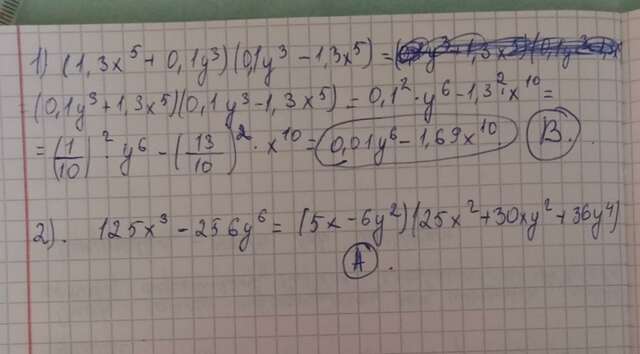 1) (1,3x⁵ + 0,1y³)(0,1y³ − 1,3x⁵) =
= (0,1y³ + 1,3x⁵)(0,1y³ − 1,3x⁵) = 0,1² · y⁶ − 1,3² · x¹⁰ =
= (1/10)² · y⁶ − (13/10)² · x¹⁰ = 0,01y⁶ − 1,69x¹⁰ B.
2). 125x³ − 256y⁶ = (5x − 6y²)(25x² + 30xy² + 36y⁴)
A.